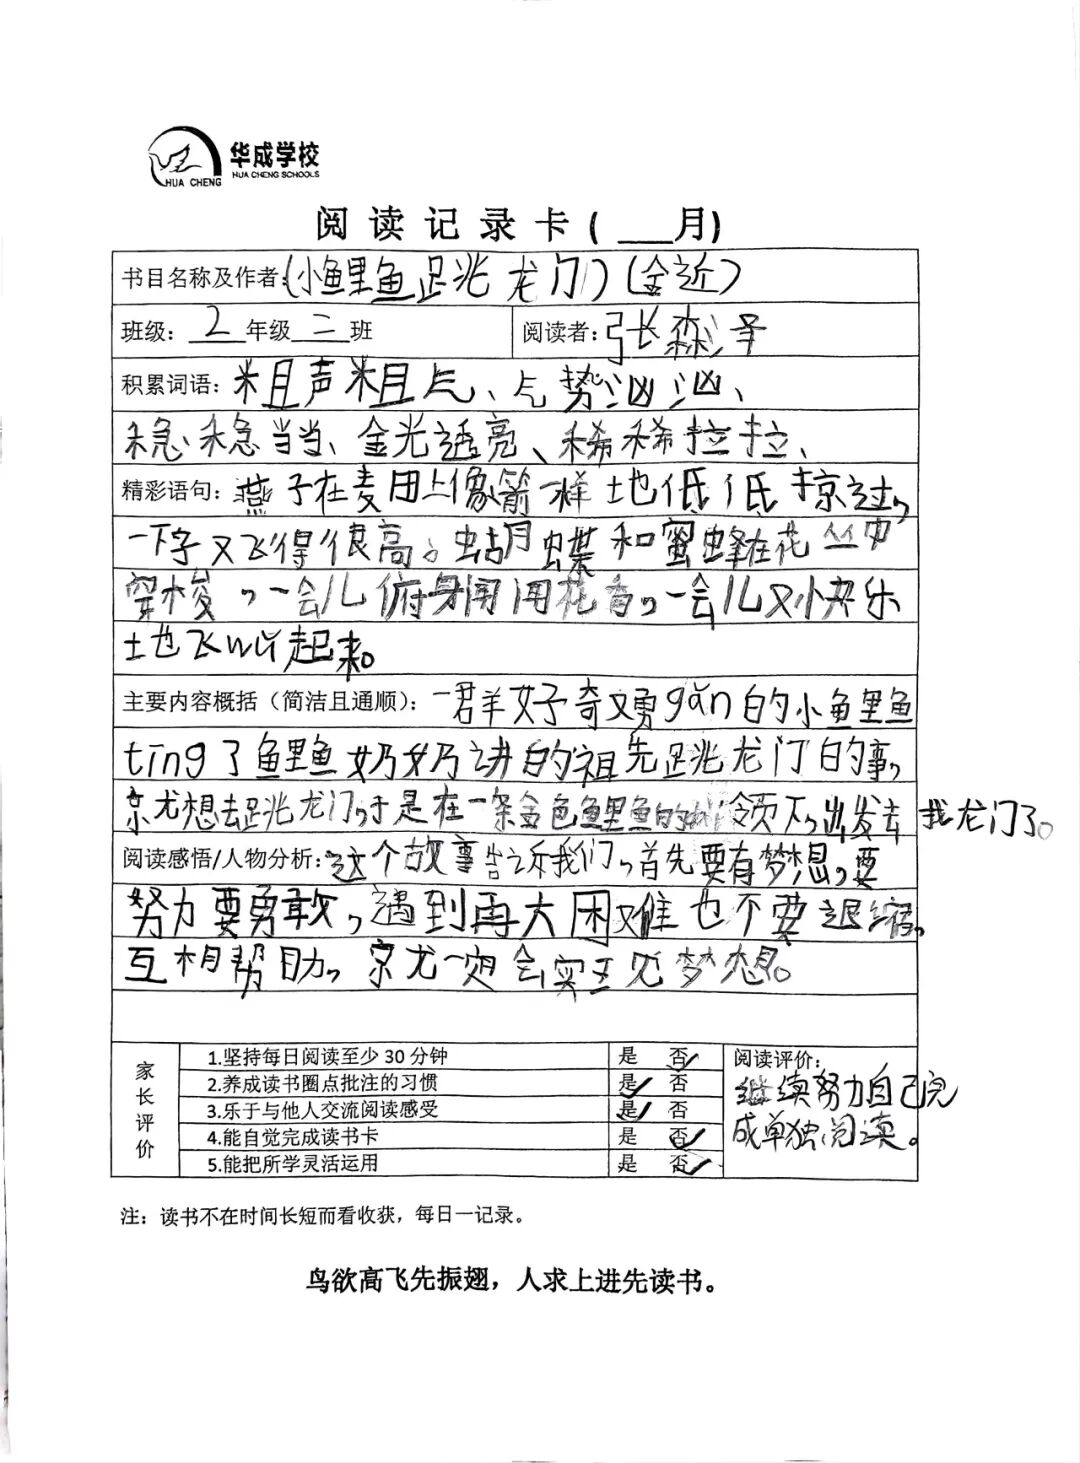 华成学校
HUA CHENG SCHOOLS
HUA CHENG
阅读记录卡(___月)
书目名称及作者:(小鲤鱼跳龙门)(金近)
班级: 2 年级 三 班
阅读者: 张森泽
积累词语: 粗声粗气、气势汹汹、
稳稳当当、金光透亮、稀稀拉拉、
精彩语句: 燕子在麦田上像箭一样地低低掠过,
一下子又飞得很高。蝴蝶和蜜蜂在花丛中
穿梭,一会儿俯身闻闻花香,一会儿又小快乐
地飞舞起来。
主要内容概括(简洁且通顺): 一群好奇又勇gǎn的小鲤鱼
tīng了鲤鱼奶奶讲的祖先跳龙门的事,
就想去跳龙门,于是在一条金色鲤鱼的 领下,出发去找龙门了。
阅读感悟/人物分析: 这个故事告诉我们,首先要有梦想,要
努力要勇敢,遇到再大困难也不要退缩。
互相帮助,就一定会实现梦想。
家长评价
1.坚持每日阅读至少30分钟 是 否✓
2.养成读书圈点批注的习惯 是✓ 否
3.乐于与他人交流阅读感受 是✓ 否
4.能自觉完成读书卡 是 否✓
5.能把所学灵活运用 是 否✓
阅读评价:
继续努力自己完
成单独阅读。
注：读书不在时间长短而看收获，每日一记录。
鸟欲高飞先振翅，人求上进先读书。